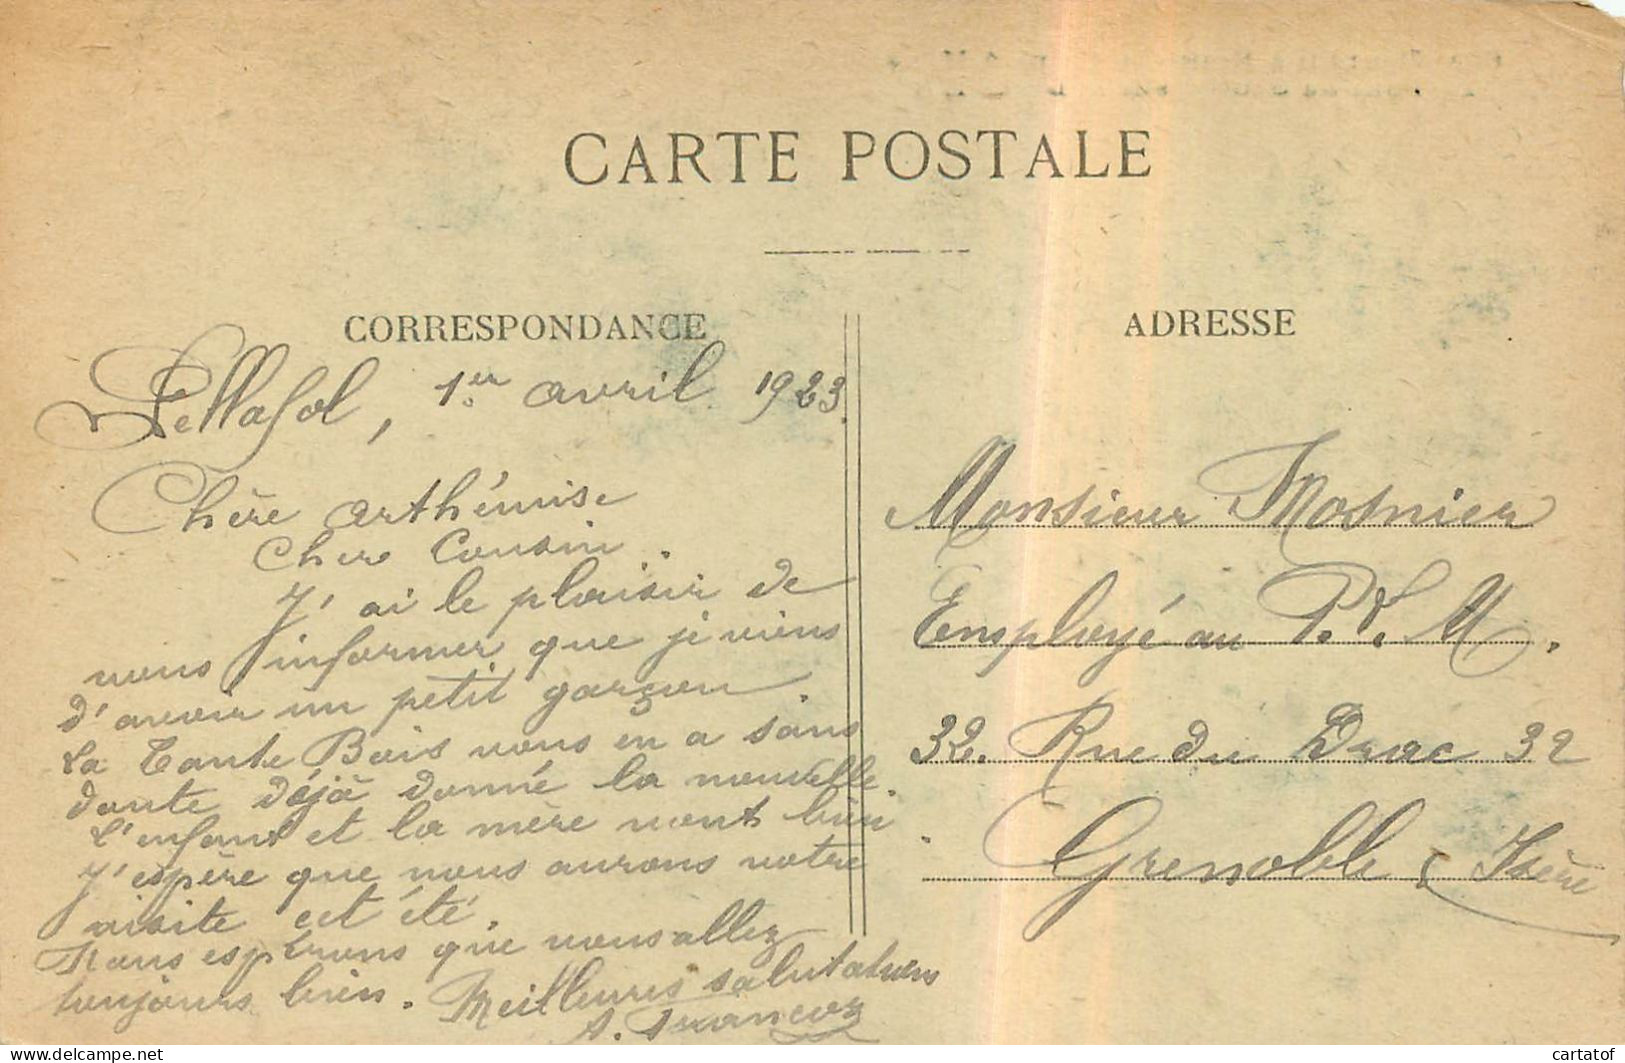 CARTE POSTALE
CORRESPONDANCE
Pellafol, 1er avril 1923.
Chère Arthémise
Cher Cousin.
J'ai le plaisir de
vous informer que je viens
d'avoir un petit garçon.
La Tante Bois vous en a sans
doute déjà donné la nouvelle.
L'enfant et la mère vont bien.
J'espère que nous aurons votre
visite cet été.
Nous espérons que vous allez
toujours bien. Meilleures salutations
A. Francoz
ADRESSE
Monsieur Mosnier
Employé au P.L.M.
32. Rue du Drac 32
Grenoble (Isère
delcampe.net
cartatof